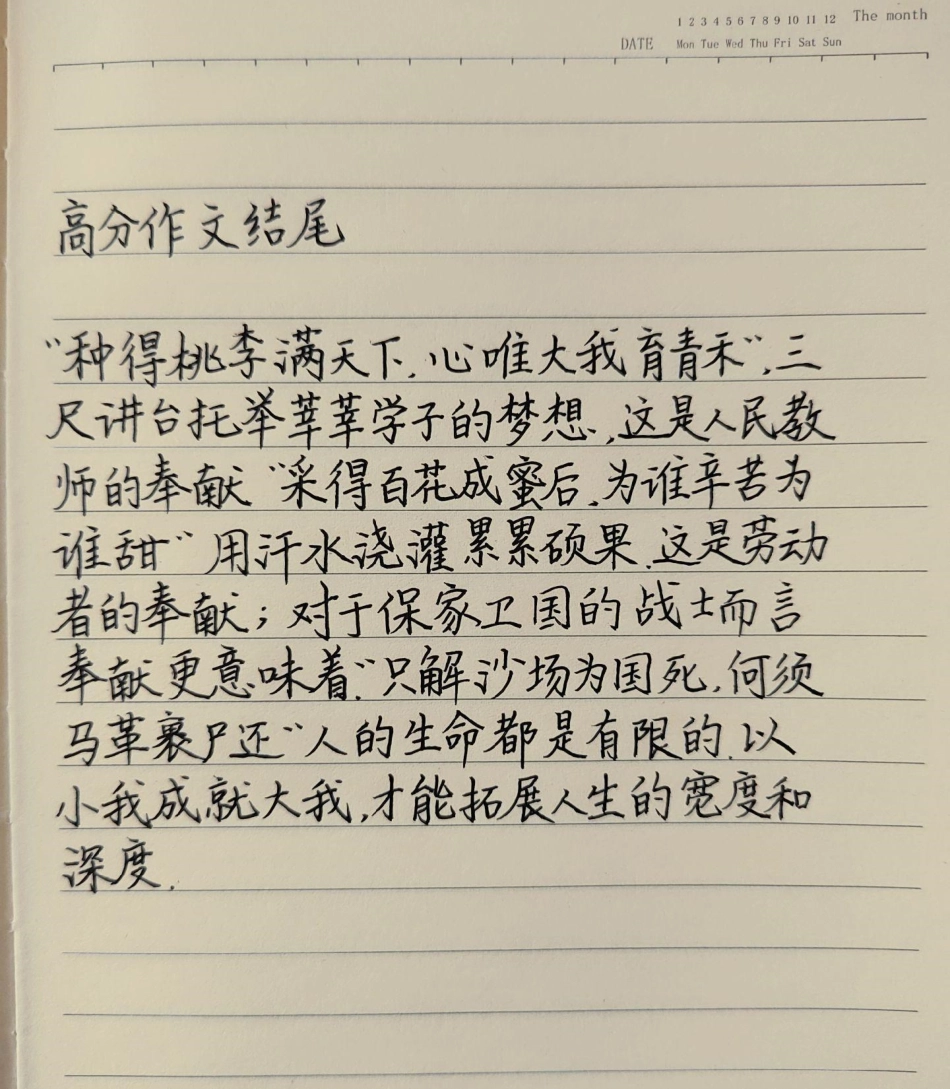 1 2 3 4 5 6 7 8 9 10 11 12 The month
DATE Mon Tue Wed Thu Fri Sat Sun
高分作文结尾
“种得桃李满天下,心唯大我育青禾”,三
尺讲台托举莘莘学子的梦想,这是人民教
师的奉献“采得百花成蜜后,为谁辛苦为
谁甜”用汗水浇灌累累硕果,这是劳动
者的奉献;对于保家卫国的战士而言
奉献更意味着“只解沙场为国死,何须
马革裹尸还”人的生命都是有限的,以
小我成就大我,才能拓展人生的宽度和
深度.